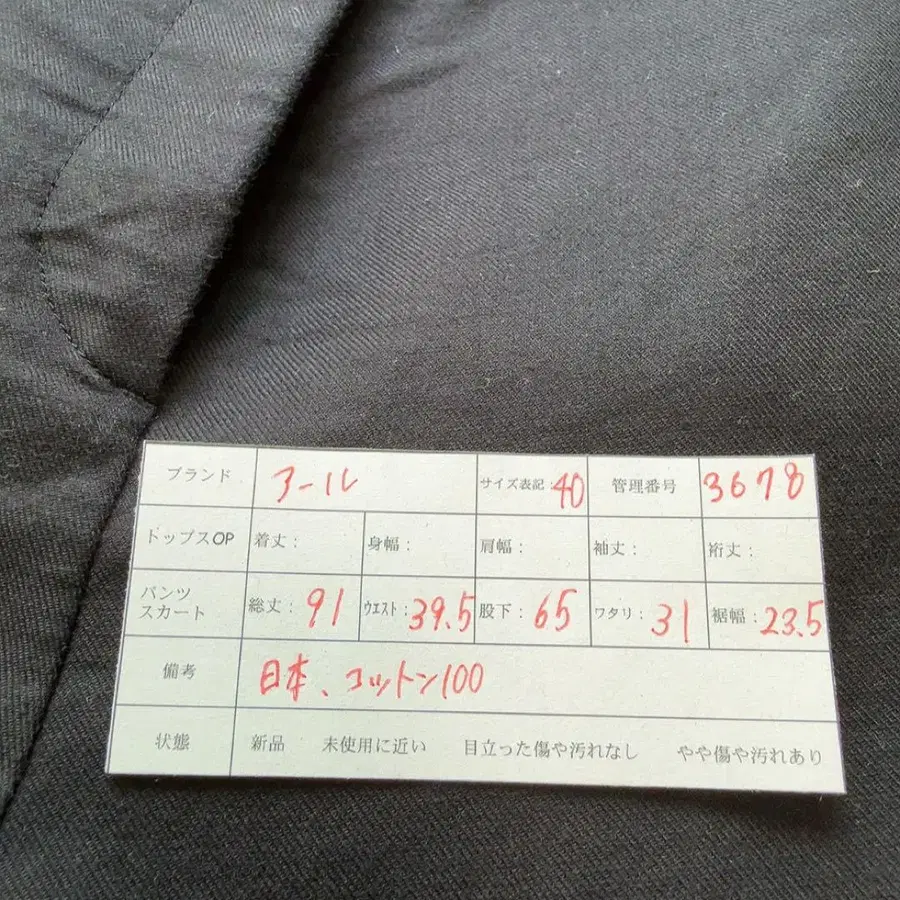 ブランド アール サイズ表記：40 管理番号 3678
トップスOP 着丈： 身幅： 肩幅： 袖丈： 裄丈：
パンツ
スカート 総丈：91 ウエスト：39.5 股下：65 ワタリ：31 裾幅：23.5
備考 日本、コットン100
状態 新品 未使用に近い 目立った傷や汚れなし やや傷や汚れあり